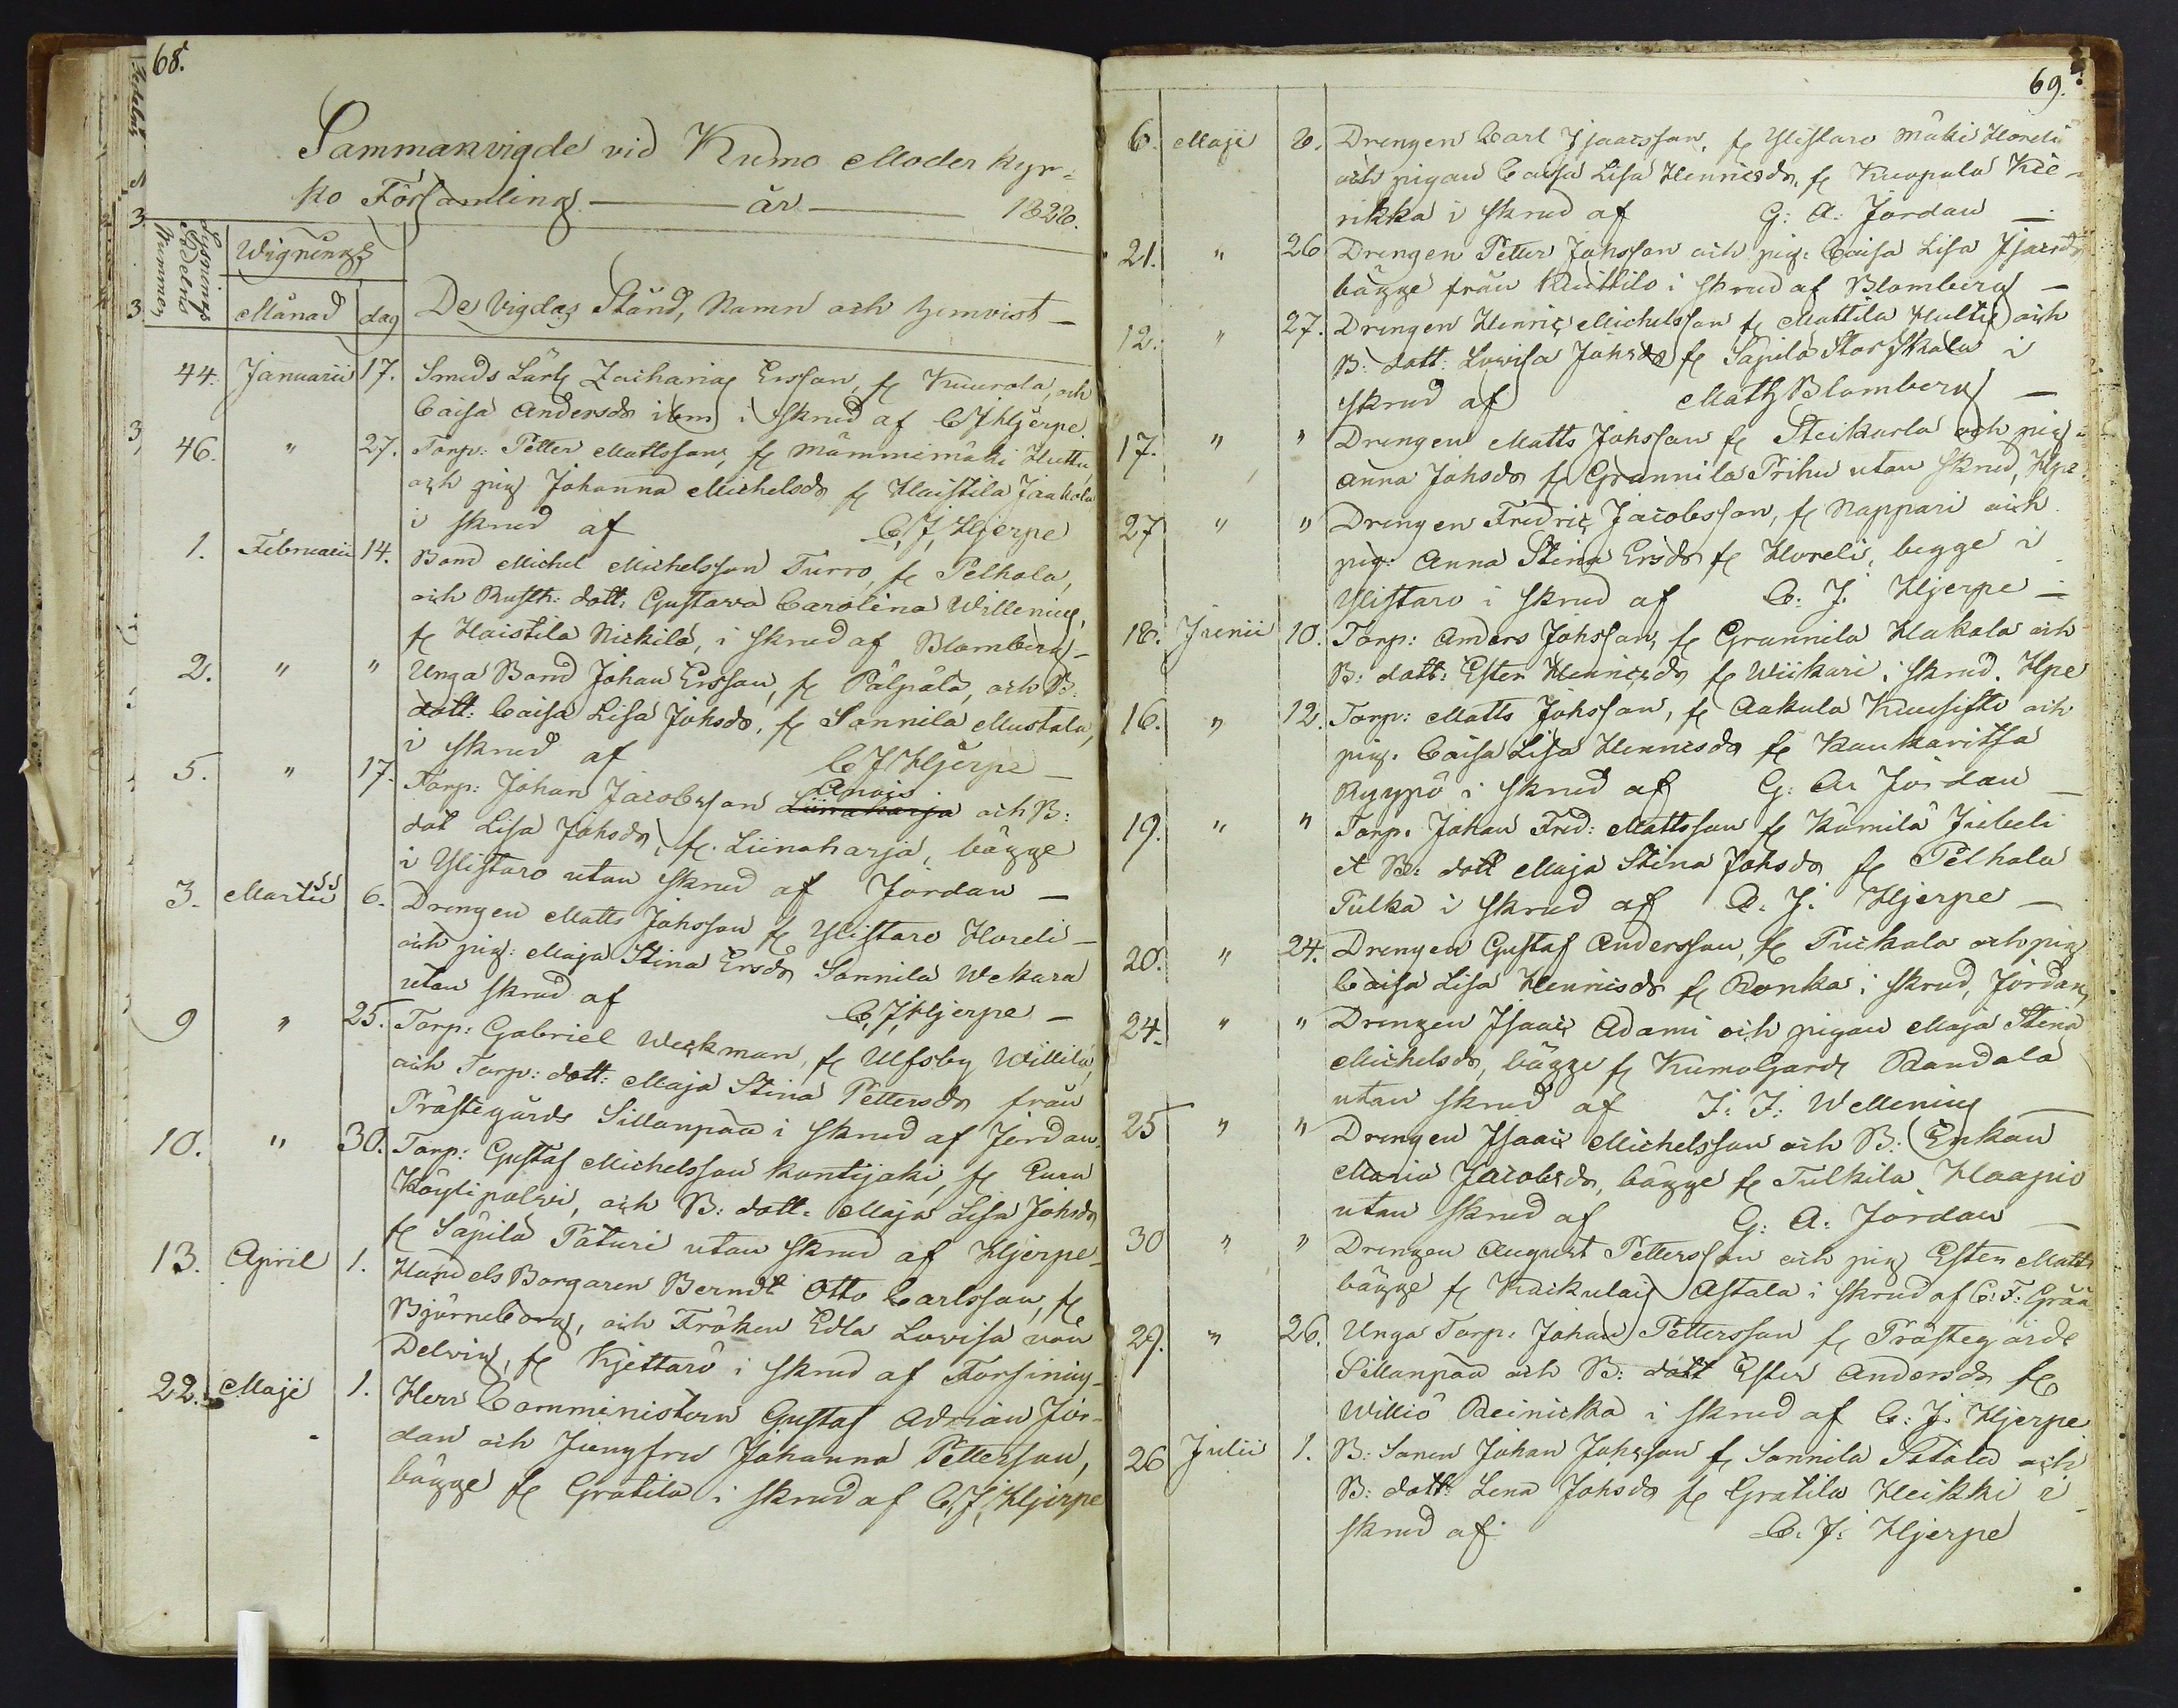 68.
Sammanvigde vid Kumo Moder kyr-
ko Församling — år — 1828.
Lysnings
Sedelns
Nummer
Wignings
Månad
dag
De Vigdas Stånd, Namn och hemvist —
44. Januarii 17. Smeds Lärl Zacharias Ersson, fr Kuurola, och
Caisa Andersdr ibm i skrud af C J Hjerpe
46. " 27. Torp: Petter Mattsson, fr Mämmimäki Huttu,
och pig Johanna Michelsdr fr Haistila Jaakola
i skrud af C, J, Hjerpe
1. Februarii 14. Bond Michel Michelsson Turro, fr Pelhola,
och Rusth: dott: Gustava Carolina Willenius,
fr Haistila Nickila, i skrud af Blomberg —
2. " " Unga Bond Johan Ersson, fr Pälpälä, och B:
dott: Caisa Lisa Johsdr, fr Sonnila Mustala,
i skrud af C J Hjerpe —
5. " 17. Torp: Johan Jacobsson Liinaharja och B:
dot Lisa Johsdr, fr. Liinaharja, bägge
i Ylistaro utan skrud af Jordan —
3. Martii 6. Drengen Matts Johsson fr Ylistaro Horeli —
och pig: Maja Stina Ersdr Sonnila Wekara
utan skrud af C, J, Hjerpe —
9 " 25. Torp: Gabriel Weckman, fr Ulfsby Willila,
och Torp: dott: Maja Stina Pettersdr från
Prästegårds Sillanpää i skrud af Jordan.
10. " 30. Torp: Gustaf Michelsson Kontijoki, fr Eura
Köylipolvi, och B: dott: Maja Lisa Johsdr
fr Säpilä Päturi utan skrud af Hjerpe —
13. April 1. Handels Borgaren Berndt Otto Carlsson, fr
Björneborg, och Fröken Edla Lovisa von
Delwig, fr Kjettarö i skrud af Forsinius —
22. Maji 1. Herr Comministern Gustaf Adrian Jor-
dan och Jungfru Johanna Petterson,
bägge fr Gratila i skrud af C, J, Hjerpe
69.
6. Maji 8. Drengen Carl Isaacsson, fr Ylistaro Mäki Horeli
och pigan Caisa Lisa Henricsdr, fr Kuopala Kie-
rikka i skrud af G: A: Jordan —
21. " 26 Drengen Petter Johsson och pig: Caisa Lisa Isacsdr
bägge från Kuittilo i skrud af Blomberg —
12. " 27. Drengen Henric Michelsson fr Mattila Hultti och
B: dott: Lovisa Johsdr fr Säpilä Stor Skala i
skrud af Math Blomberg —
17. " " Drengen Matts Johsson fr Steikarla och pig.
Anna Johsdr fr Grannila Prihu utan skrud, Hpe.
27 " " Drengen Fredric Jacobsson, fr Nappari och
pig: Anna Stina Ersdr fr Horeli, begge i
Ylistaro i skrud af C. J. Hjerpe —
18. Junii 10. Torp: Anders Johsson, fr Grannila Hakola och
B: dott: Ester Henricsdr fr Wiikari i skrud. Hpe
16. " 12. Torp: Matts Johsson, fr Aakula Kuusisto och
pig. Caisa Lisa Henricsdr fr Kaukaritsa
Ryyppö i skrud af G: A: Jordan —
19. " " Torp: Johan Fred: Mattsson fr Kämilä Juheli
et B: dott Maja Stina Johsdr fr Pelhola
Tulka i skrud af C. J. Hjerpe —
20. " 24. Drengen Gustaf Andersson, fr Puckala och pig
Caisa Lisa Henricsdr fr Ronka i skrud, Jordan,
24. " " Drengen Isaac Adami och pigan Maja Stina
Michelsdr, bägge fr Kumo Gards Randala
utan skrud af F: F: Wellenius —
25 " " Drengen Isaac Michelsson och B: Enkan
Maria Jacobsdr, bägge fr Tulkila Haapio
utan skrud af G: A: Jordan —
30 " " Drengen August Pettersson och pig Ester Matts
bägge fr Kackulais Astala i skrud af C: F: Grää
29. " 26. Unga Torp: Johan Pettersson fr Prästegårds
Sillanpää och B: dott Ester Andersdr fr
Williö Reinicka i skrud af C: J: Hjerpe
26 Julii 1. B: Sonen Johan Johsson fr Sonnila Ståla och
B: dott: Lena Johsdr fr Gratila Heikki i
skrud af C. J. Hjerpe